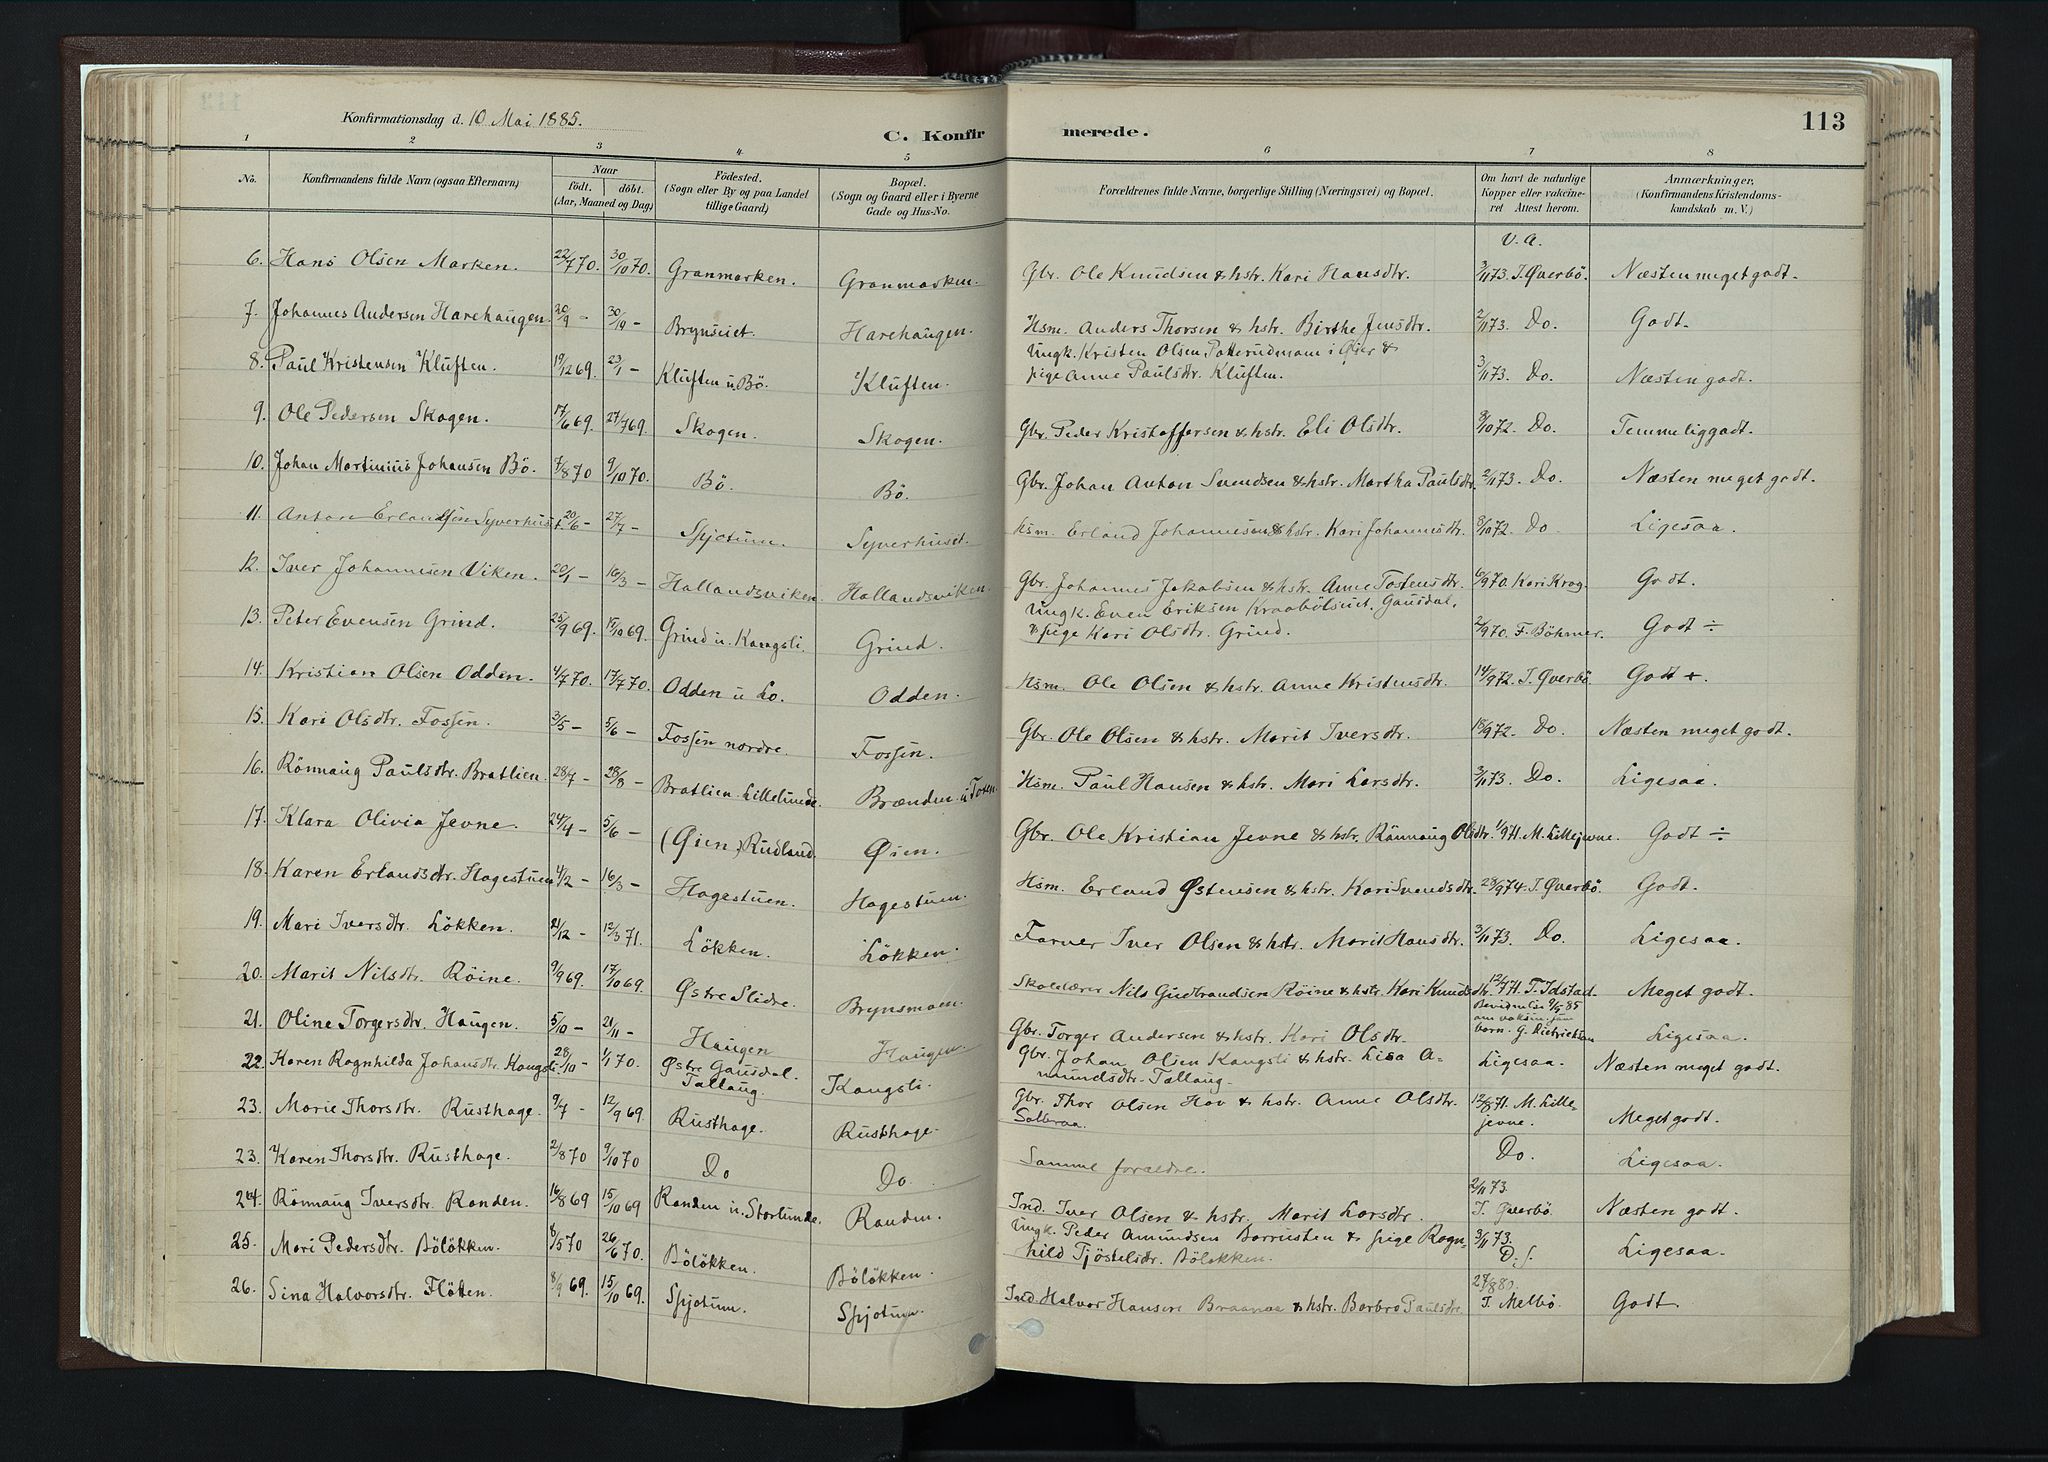 Konfirmationsdag d. 10 Mai 1885.
C. Konfirmerede.
113
1 2 3 4 5 6 7 8
No. Konfirmandens fulde Navn (ogsaa Efternavn) Naar født. døbt. (Aar, Maaned og Dag) Fødested. (Sogn eller By og paa Landet tillige Gaard) Bopæl. (Sogn og Gaard eller i Byerne Gade og Hus-No. Forældrenes fulde Navne, borgerlige Stilling (Næringsvei) og Bopæl. Om havt de naturlige Kopper eller vakcineret Attest herom. Anmærkninger, (Konfirmandens Kristendomskundskab m. V.)
V. A.
6. Hans Olsen Marken. 22/7 70. 30/10 70. Granmarken. Granmarken. Gbr. Ole Knudsen & hstr. Kari Hansdtr. 3/11 73. T. Øverbö. Næsten meget godt.
7. Johannes Andersen Harehaugen. 20/9 - 30/10 - Brynsviet. Harehaugen. Hsm. Anders Thorsen & hstr. Birthe Jensdtr. 2/11 73. Do. Godt.
8. Paul Kristensen Kluften. 19/12 69. 23/1 - Kluften u. Bö. Kluften. Ungk. Kristen Olsen Potterudmoen i Øier &
pige Anne Paulsdtr. Kluften. 3/11 73. Do. Næsten godt.
9. Ole Pedersen Skogen. 17/6 69. 27/7 69. Skogen. Skogen. Gbr. Peder Kristoffersen & hstr. Eli Olsdtr. 8/10 72. Do. Temmelig godt.
10. Johan Martinius Johansen Bö. 7/8 70 9/10 70. Bö. Bö. Gbr. Johan Anton Svendsen & hstr. Martha Paulsdtr. 2/11 73. Do. Næsten meget godt.
11. Anton Erlandsen Syverhuset. 20/6 - 27/7 - Spjotum. Syverhuset. Hsm. Erland Johannesen & hstr. Kari Johannesdtr. 8/10 72. Do Ligesaa.
12. Iver Johannesen Viken. 20/1 - 16/3 - Hallandsviken. Hallandsviken. Gbr. Johannes Jakobsen & hstr. Anne Tostensdtr. 6/9 70. Kari Krog. Godt.
13. Peter Evensen Grind. 25/9 69. 17/10 69. Grind u. Kangsli. Grind. Ungk. Even Eriksen Kraabölseiet. Gausdal,
& pige Kari Olsdtr. Grind. 2/9 70. F. Böhmer. Godt ÷
14. Kristian Olsen Odden. 4/7 70. 17/7 70. Odden u Lo. Odden. Hsm. Ole Olsen & hstr. Anne Kristensdtr. 14/9 72. T. Øverbö. Godt +.
15. Kari Olsdtr. Fossen. 3/5 - 5/6 - Fossen nordre. Fossen. Gbr. Ole Olsen & hstr. Marit Iversdtr. 18/9 72. Do. Næsten meget godt.
16. Rönnaug Paulsdtr. Bratlien. 28/7 - 28/8 - Bratlien. Lillelunde. Brænden u Toten. Hsm. Paul Hansen & hstr. Mari Larsdtr. 3/11 73. Do. Ligesaa.
17. Klara Olivia Jevne. 24/4 - 5/6 - (Øien) Rudland. Øien. Gbr. Ole Kristian Jevne & hstr. Rönnaug Olsdtr. 1/9 71. M. Lillejevne. Godt ÷
18. Karen Erlandsdtr. Hagestuen 4/2 - 16/3 - Hagestuen. Hagestuen. Hsm. Erland Østensen & hstr. Kari Svendsdtr. 28/9 74. T. Øverbö. Godt.
19. Mari Iversdtr. Lökken. 21/12 - 12/3 71. Lökken. Lökken. Farver Iver Olsen & hstr. Marit Hansdtr. 3/11 73. Do. Ligesaa.
20. Marit Nilsdtr. Röine. 9/9 69. 17/10 69. Østre Slidre. Brynsmoen. Skolelærer Nils Gudbrandsen Röine & hstr. Kari Knudsdtr. 12/7 71. T. Idstad. Meget godt.
21. Oline Torgersdtr. Haugen. 5/10 - 21/11 - Haugen Haugen Gbr. Torger Andersen & hstr. Kari Olsdtr. Bevidnelse 9/5 85
om vaksin. som
barn. G. Dietrichson Ligesaa.
22. Karen Ragnhilda Johansdtr. Kangsli 28/10 - 1/1 70. Østre Gausdal.
Tallaug. Kangsli. Gbr. Johan Olsen Kangsli & hstr. Lisa A-
mundsdtr. Tallaug. Ligesaa. Næsten meget godt.
23. Marie Thorsdtr. Rusthage. 9/7 - 12/9 69. Rusthage. Rusthage. Gbr. Thor Olsen Hov & hstr. Anne Olsdtr.
Solbraa. 12/8 71. M. Lille-
jevne. Meget godt.
23. Karen Thorsdtr. Rusthage. 2/8 70 9/10 70 Do Do. Samme forældre. Do. Ligesaa.
24. Rönnaug Iversdtr. Randen. 16/8 69 15/10 69 Randen u. Storlunde. Randen. Ind. Iver Olsen & hstr. Marit Larsdtr. 2/11 73.
T. Øverbö. Næsten godt.
25. Mari Pedersdtr. Bölökken. 8/5 70 26/6 70. Bölökken. Bölökken. Ungk. Peder Amundsen Borrusten & pige Ragn-
hild Tjöstelsdtr. Bölökken. 3/11 73.
D. s. Ligesaa.
26. Sina Halvorsdtr. Flöten. 8/9 69. 15/10 69. Spjotum. Spjotum. Ind. Halvor Hansen Braanaa & hstr. Barbro Paulsdtr. 27/8 80.
T. Melbö. Godt.